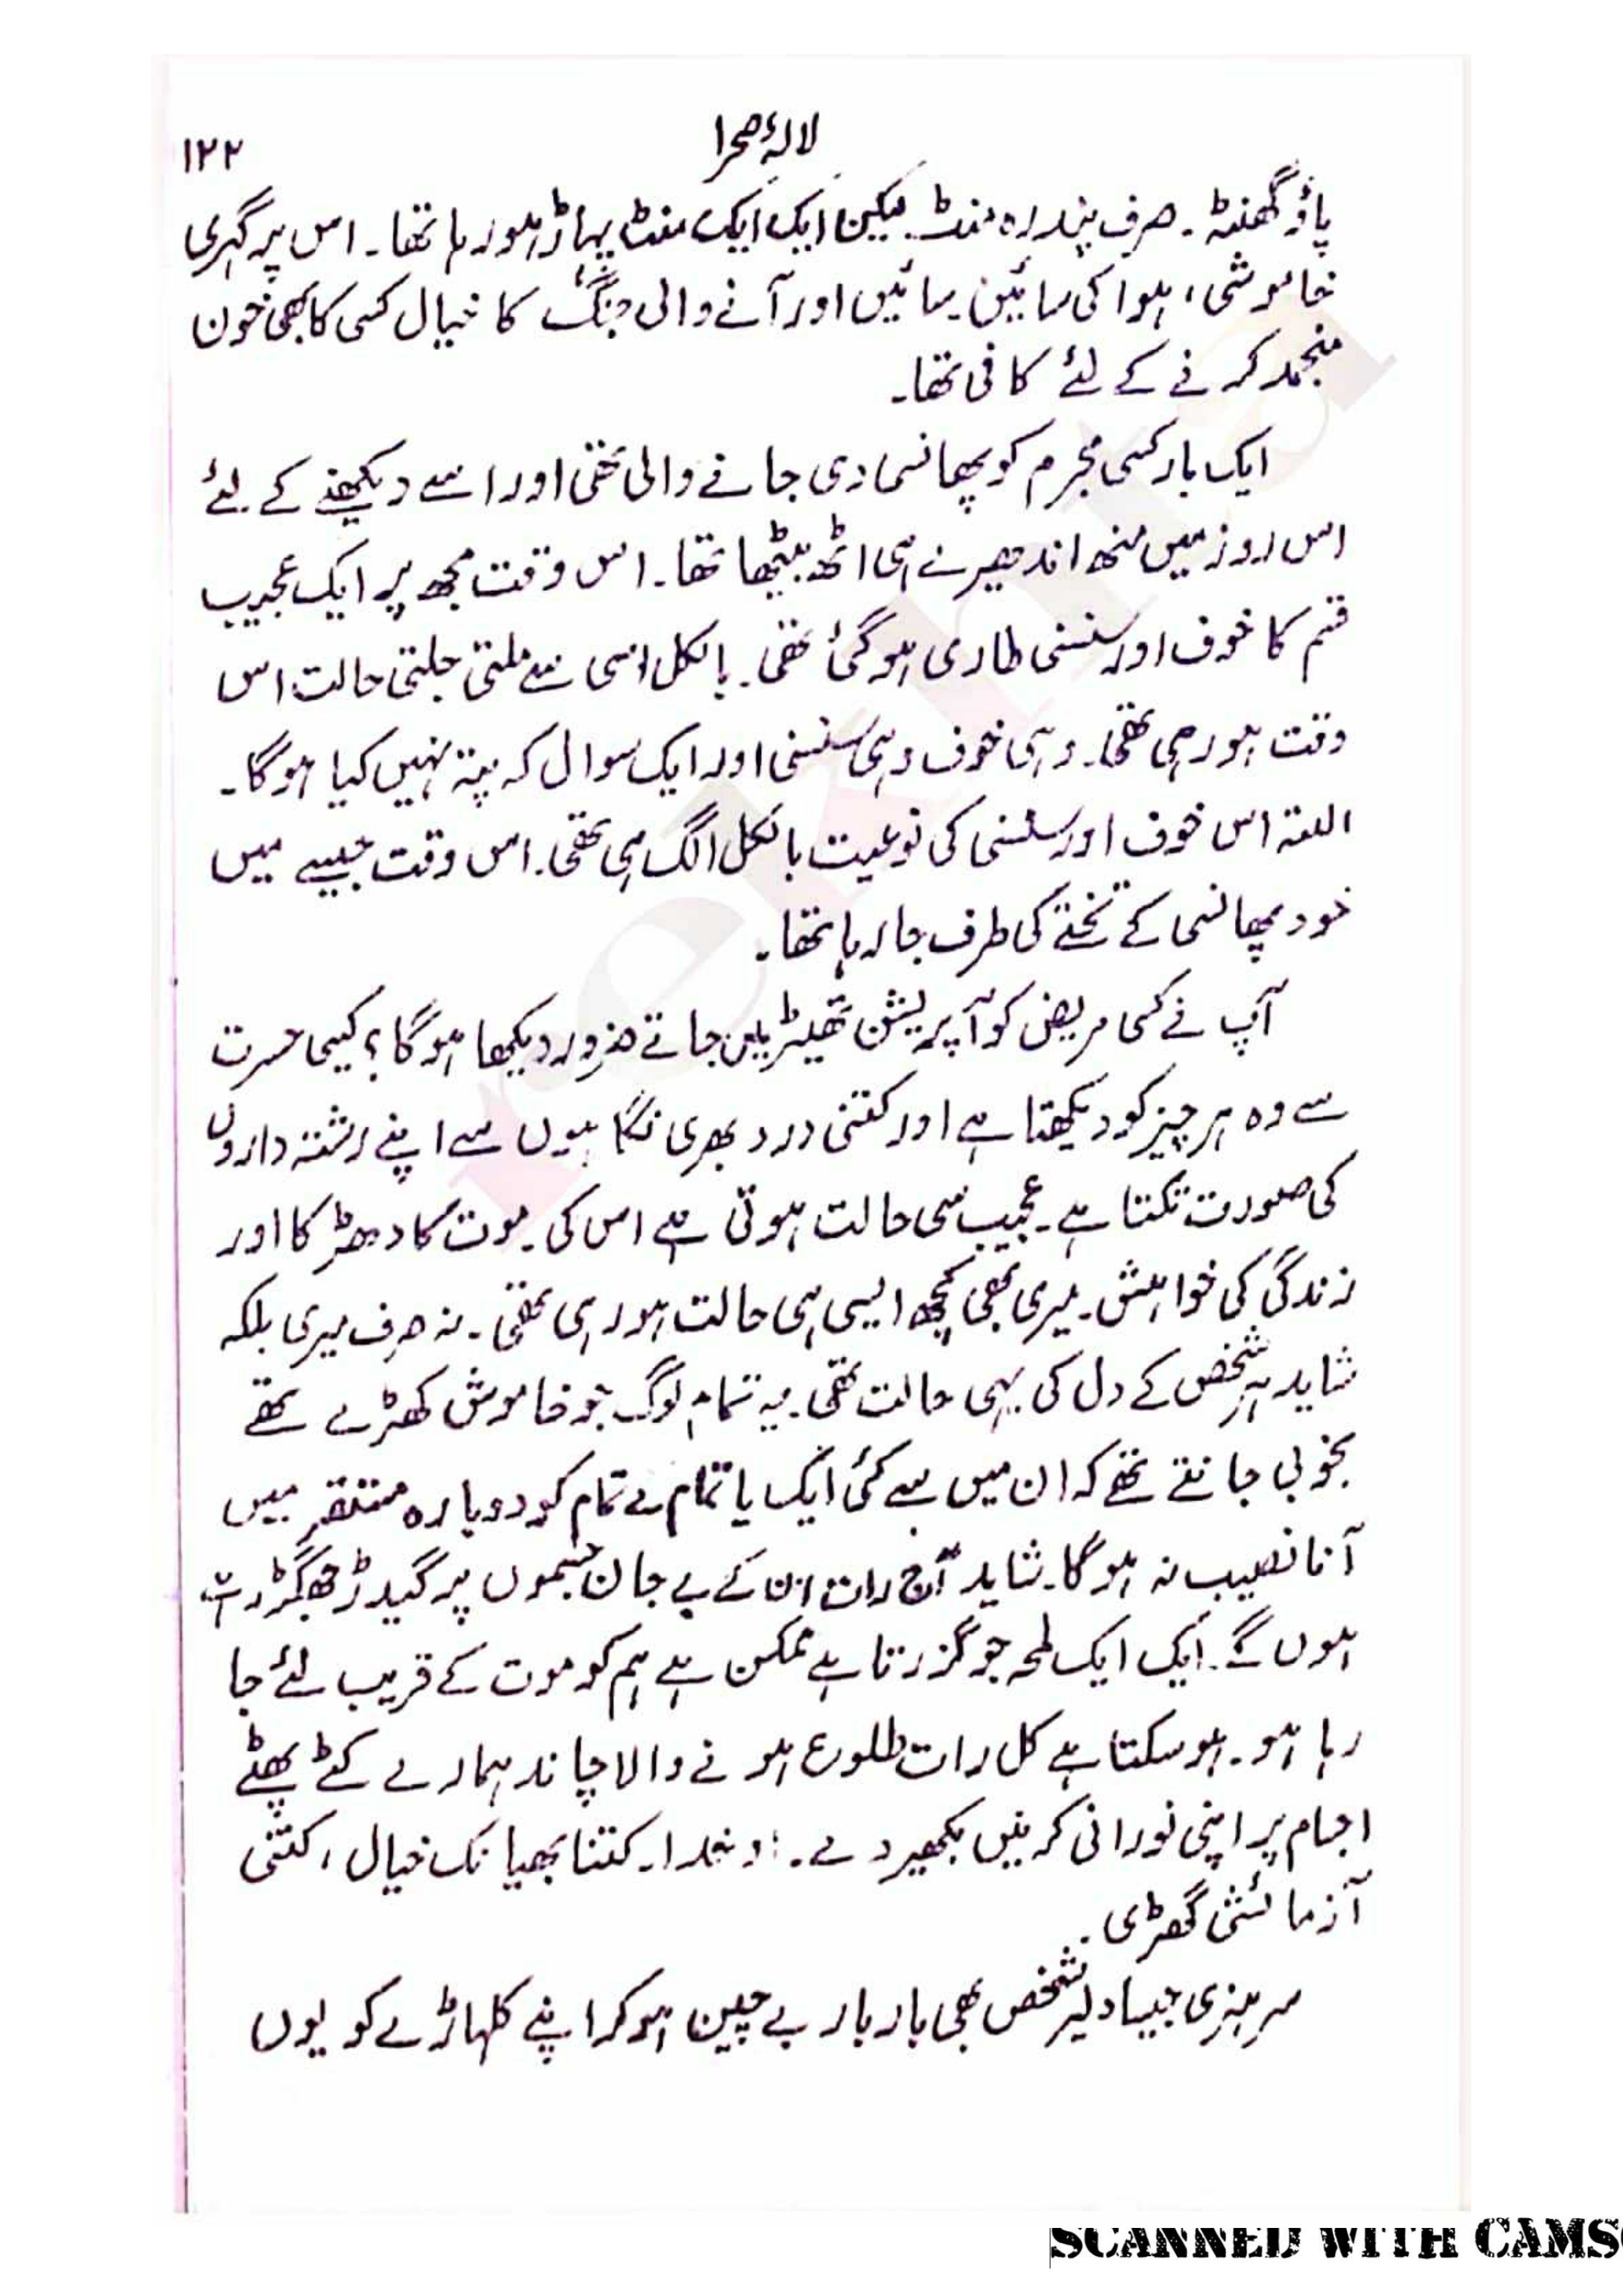 لالۂ صحرا
۱۲۲
پاؤ گھنٹہ۔ صرف پندرہ منٹ۔ لیکن ایک ایک منٹ پہاڑ ہو رہا تھا۔ اس پر گہری
خاموشی، ہوا کی سائیں سائیں اور آنے والی جنگ کا خیال کسی کا بھی خون
منجمد کرنے کے لئے کافی تھا۔
ایک بار کسی مجرم کو پھانسی دی جانے والی تھی اور اسے دیکھنے کے لئے
اس روز میں منھ اندھیرے ہی اٹھ بیٹھا تھا۔ اس وقت مجھ پر ایک عجیب
قسم کا خوف اور سنسنی طاری ہو گئی تھی۔ بالکل اسی سے ملتی جلتی حالت اس
وقت ہو رہی تھی۔ وہی خوف وہی سنسنی اور ایک سوال کہ پتہ نہیں کیا ہوگا۔
البتہ اس خوف اور سنسنی کی نوعیت بالکل الگ ہی تھی۔ اس وقت جیسے میں
خود پھانسی کے تختے کی طرف جا رہا تھا۔
آپ نے کسی مریض کو آپریشن تھیٹر میں جاتے ضرور دیکھا ہوگا؟ کیسی حسرت
سے وہ ہر چیز کو دیکھتا ہے اور کتنی درد بھری نگاہوں سے اپنے رشتہ داروں
کی صورت تکتا ہے۔ عجیب سی حالت ہوتی ہے اس کی۔ موت کا دھڑکا اور
زندگی کی خواہش۔ میری بھی کچھ ایسی ہی حالت ہو رہی تھی۔ نہ صرف میری بلکہ
شاید ہر شخص کے دل کی یہی حالت تھی۔ یہ تمام لوگ جو خاموش کھڑے تھے
بخوبی جانتے تھے کہ ان میں سے کئی ایک یا تمام کے تمام کو دوبارہ مستقر میں
آنا نصیب نہ ہوگا۔ شاید آج رات ان کے بے جان جسموں پر گیدڑ جھگڑ رہے
ہوں گے۔ ایک ایک لمحہ جو گزرتا ہے ممکن ہے ہم کو موت کے قریب لئے جا
رہا ہو۔ ہو سکتا ہے کل رات طلوع ہونے والا چاند ہمارے کٹے پھٹے
اجسام پر اپنی نورانی کرنیں بکھیر دے۔ او خدا۔ کتنا بھیانک خیال، کتنی
آزمائشی گھڑی۔
سر ہنری جیسا دلیر شخص بھی بار بار بے چین ہو کر اپنے کلہاڑے کو یوں
SCANNED WITH CAMS